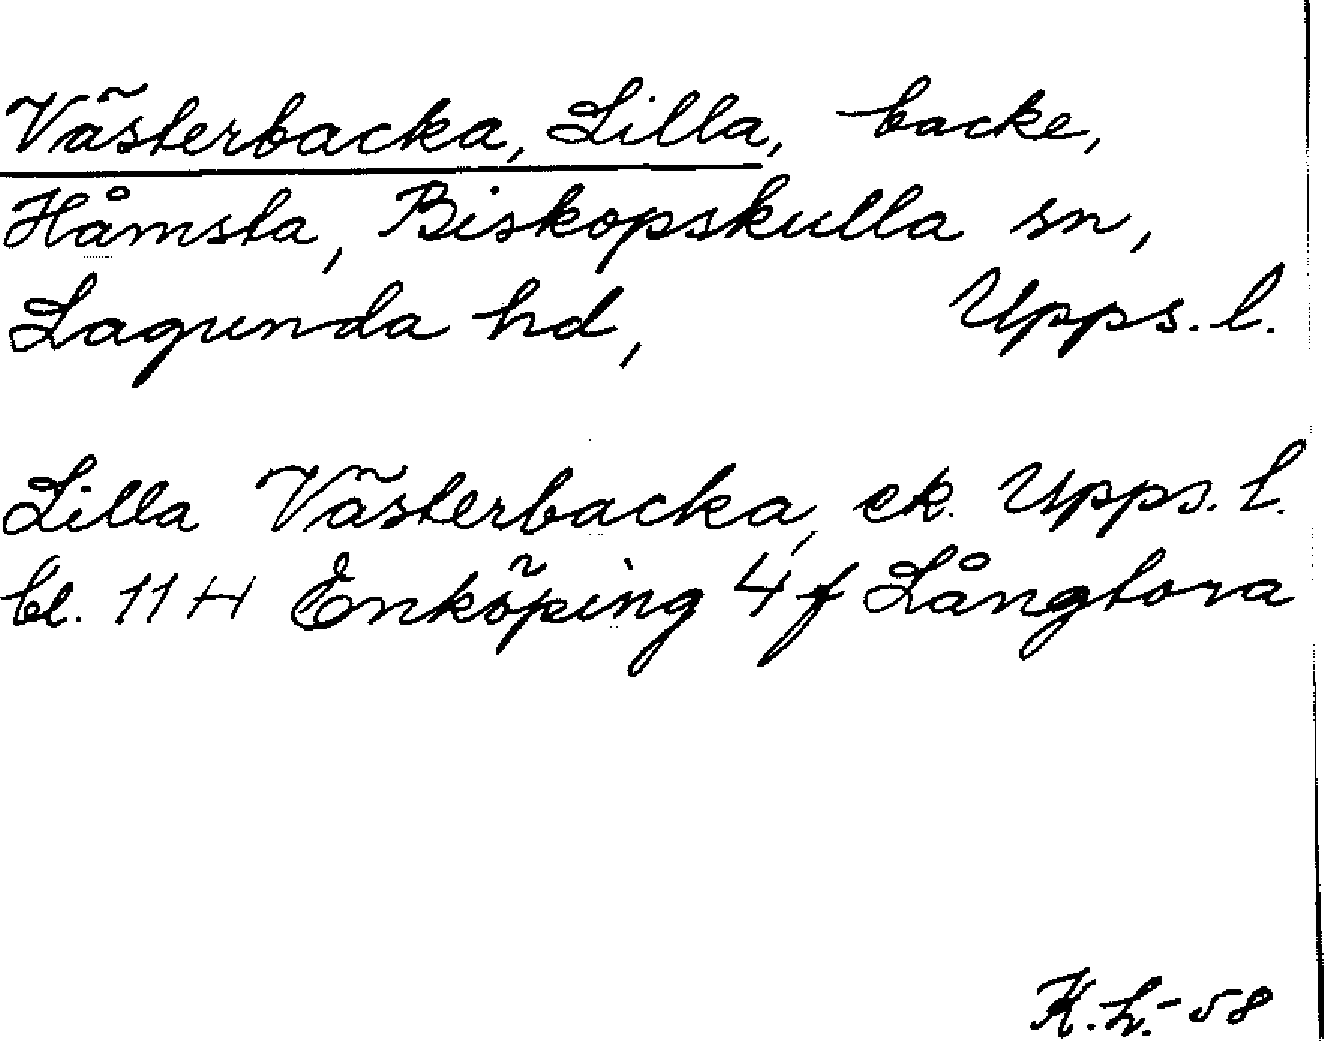 Västerbacka, Lilla, backe,
Håmsta, Biskopskulla sn,
Lagunda hd, Upps. l.
Lilla Västerbacka, ek. Upps. l.
bl. 11 H Enköping 4 f Långtora
K.L.-58